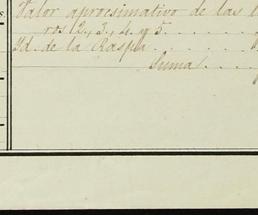 Valor aprocsimativo de las
ros 12, 3, 4 y 5. . . . . . .
Id. de la Raspa. . . . . .
Suma. . . .